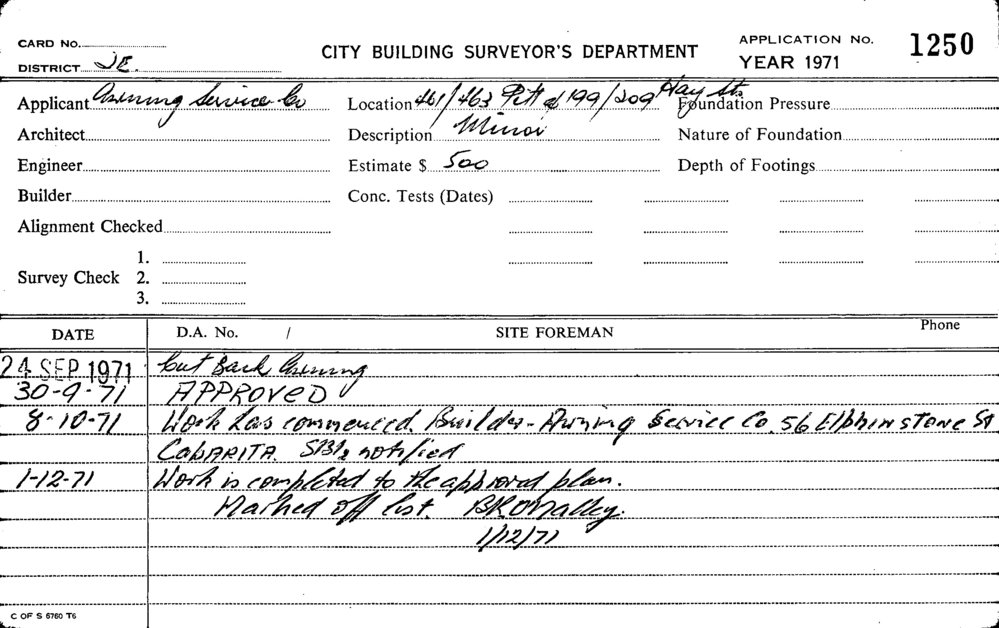 CARD No.
CITY BUILDING SURVEYOR'S DEPARTMENT
APPLICATION No. 1250
DISTRICT JE.
YEAR 1971
Applicant Awning Service Co Location 461/463 Pitt & 199/209 Hay Sts Foundation Pressure
Architect Description Minor Nature of Foundation
Engineer Estimate $ 500 Depth of Footings
Builder Conc. Tests (Dates)
Alignment Checked
1.
Survey Check 2.
3.
DATE D.A. No. / SITE FOREMAN Phone
24 SEP 1971 Cut Back Awning
30-9-71 APPROVED
8-10-71 Work has commenced. Builder - Awning Service Co. 56 Elphinstone St
CABARITA. notified
1-12-71 Work is completed to the approved plan.
Marked off list. BROMalley.
1/12/71
C OF S 6760 T6